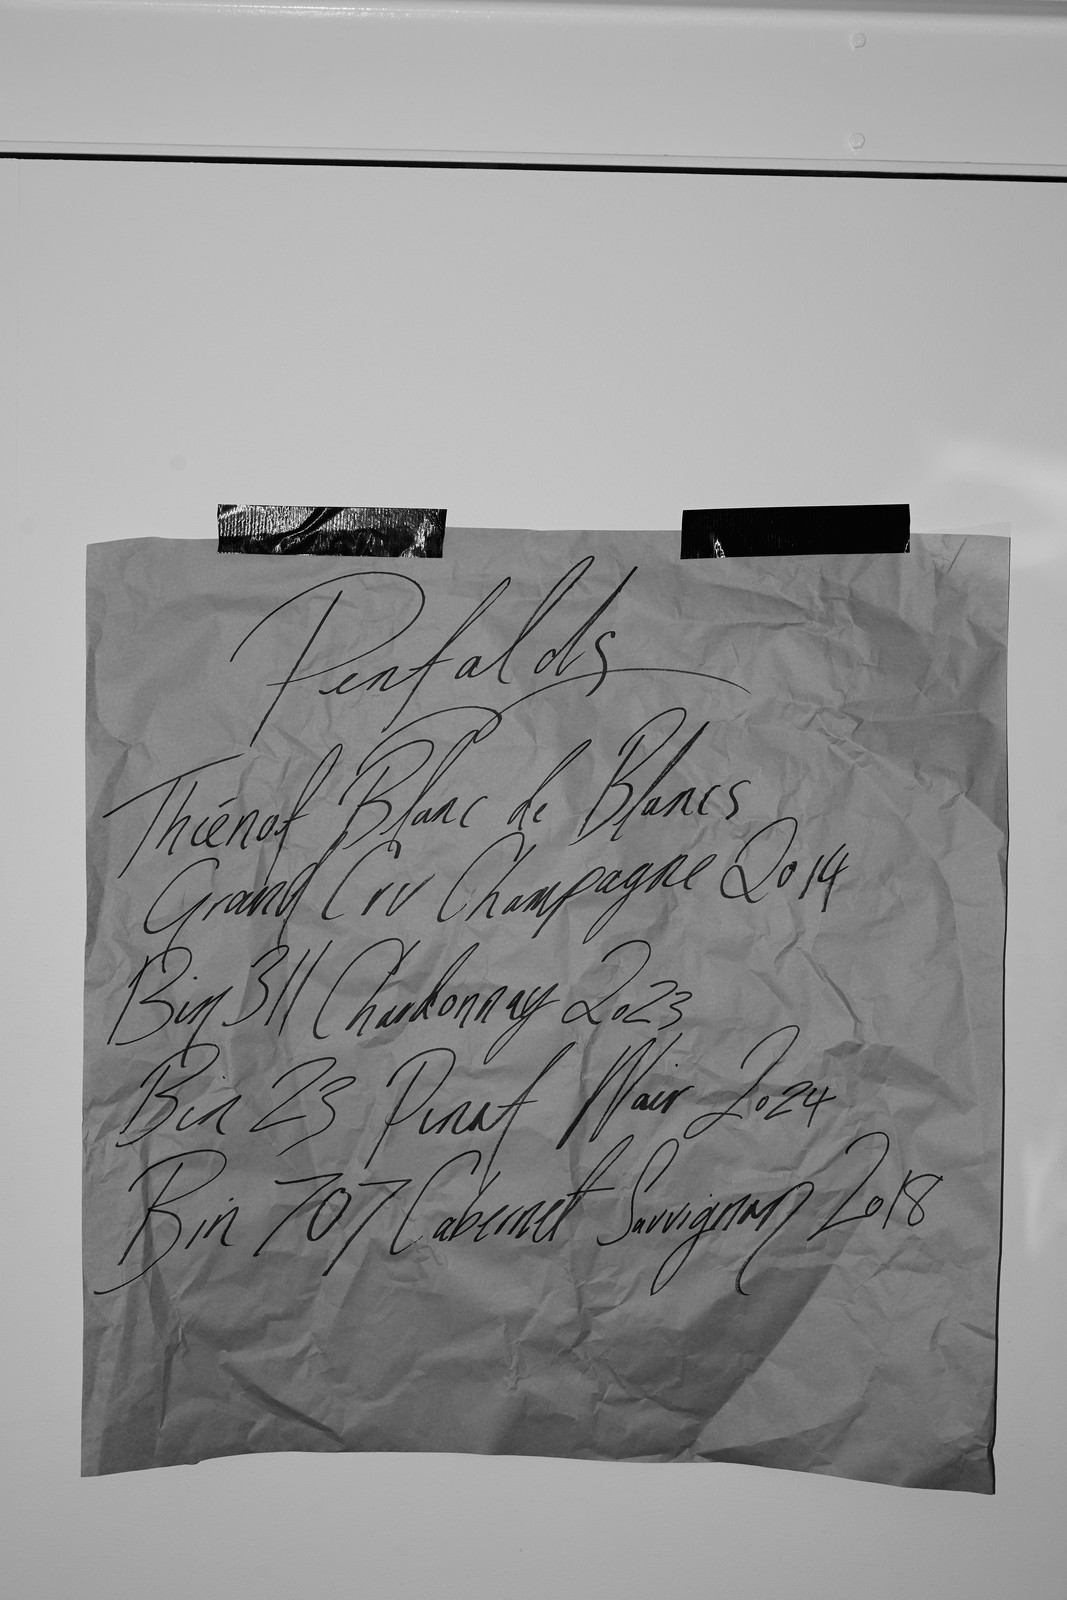 Penfolds
Thiénot Blanc de Blancs
Grand Cru Champagne 2014
Bin 311 Chardonnay 2023
Bin 23 Pinot Noir 2024
Bin 707 Cabernet Sauvignon 2018